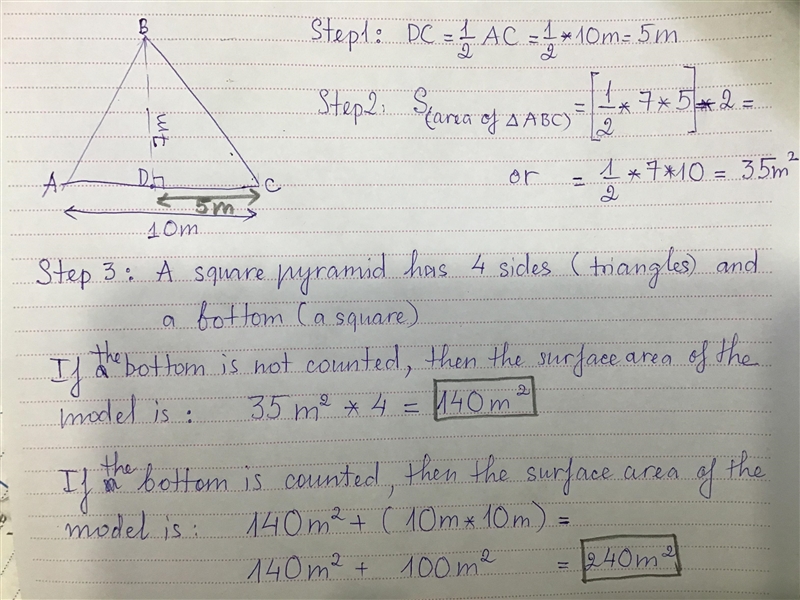 B
Step1: DC = 1/2 AC = 1/2 * 10m = 5m
Step2: S(area of △ABC) = [1/2 * 7 * 5] * 2 =
7m
A D C
or = 1/2 * 7 * 10 = 35m²
5m
10m
Step 3: A square pyramid has 4 sides (triangles) and
a bottom (a square)
If the bottom is not counted, then the surface area of the
model is: 35m² * 4 = 140m²
If the bottom is counted, then the surface area of the
model is: 140m² + (10m * 10m) =
140m² + 100m² = 240m²